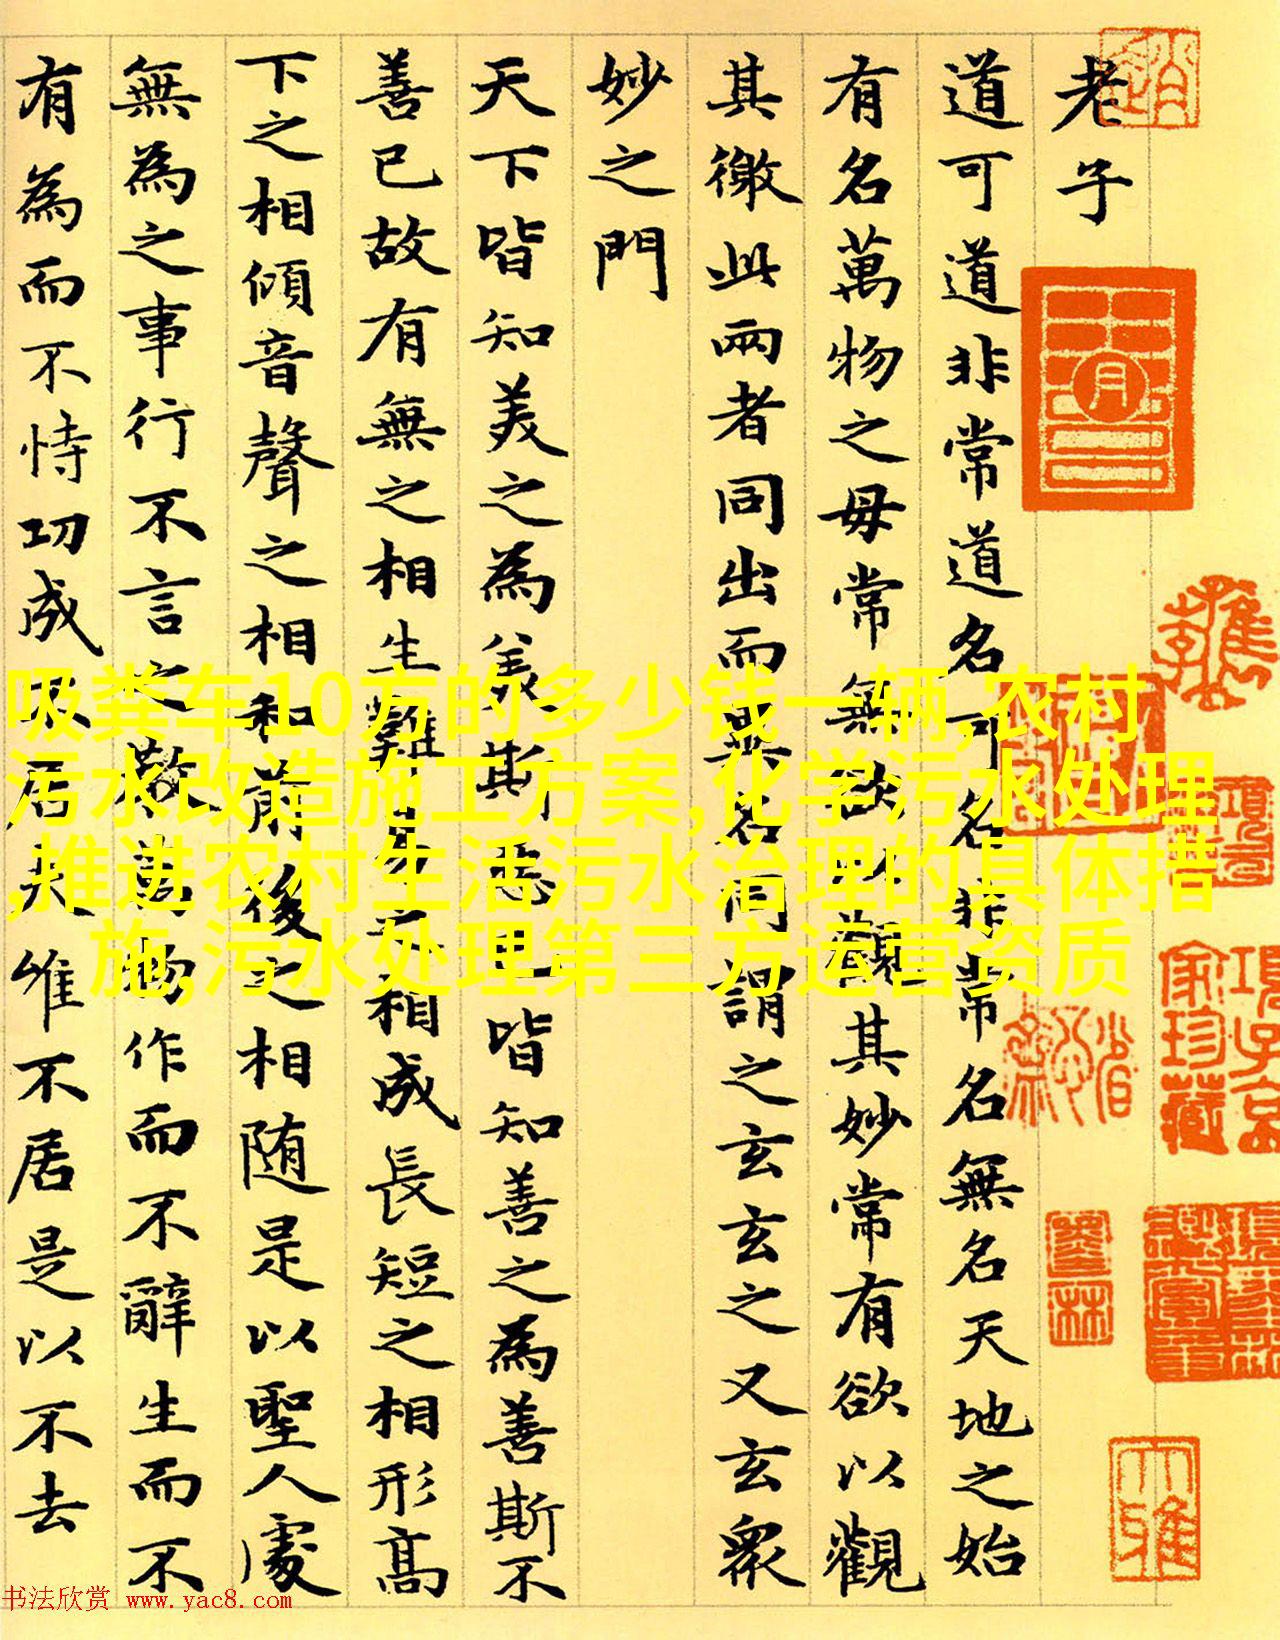 老子
道可道非常道名可名非常名無名天地之始
有名萬物之母常無欲以觀其妙常有欲以觀
其徼此兩者同出而異名同謂之玄玄之又玄衆
妙之門
天下皆知美之為美斯惡已皆知善之為善斯不
善已故有無之相生難易之相成長短之相形高
下之相傾音聲之相和前後之相随是以聖人處
無為之事行不言之教萬物作而不辭生而不
有為而不恃功成不居夫惟不居是以不去
吸粪车10方的多少钱一辆,农村
污水改造施工方案,化学污水处理
,推进农村生活污水治理的具体措
施,污水处理第三方运营资质
項子京
家珍藏
书法欣赏 www.yac8.com